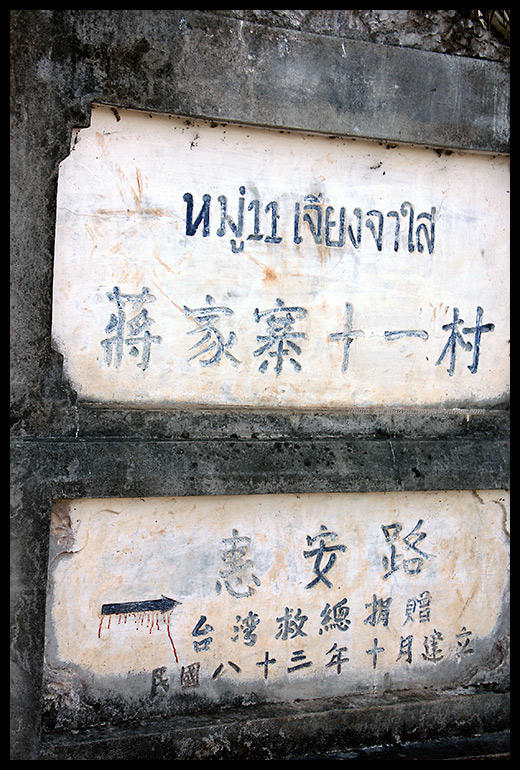 หมู่11 เจียงจาใส
蔣家寨十一村
惠安路
台灣救總捐贈
民國八十三年十月建立